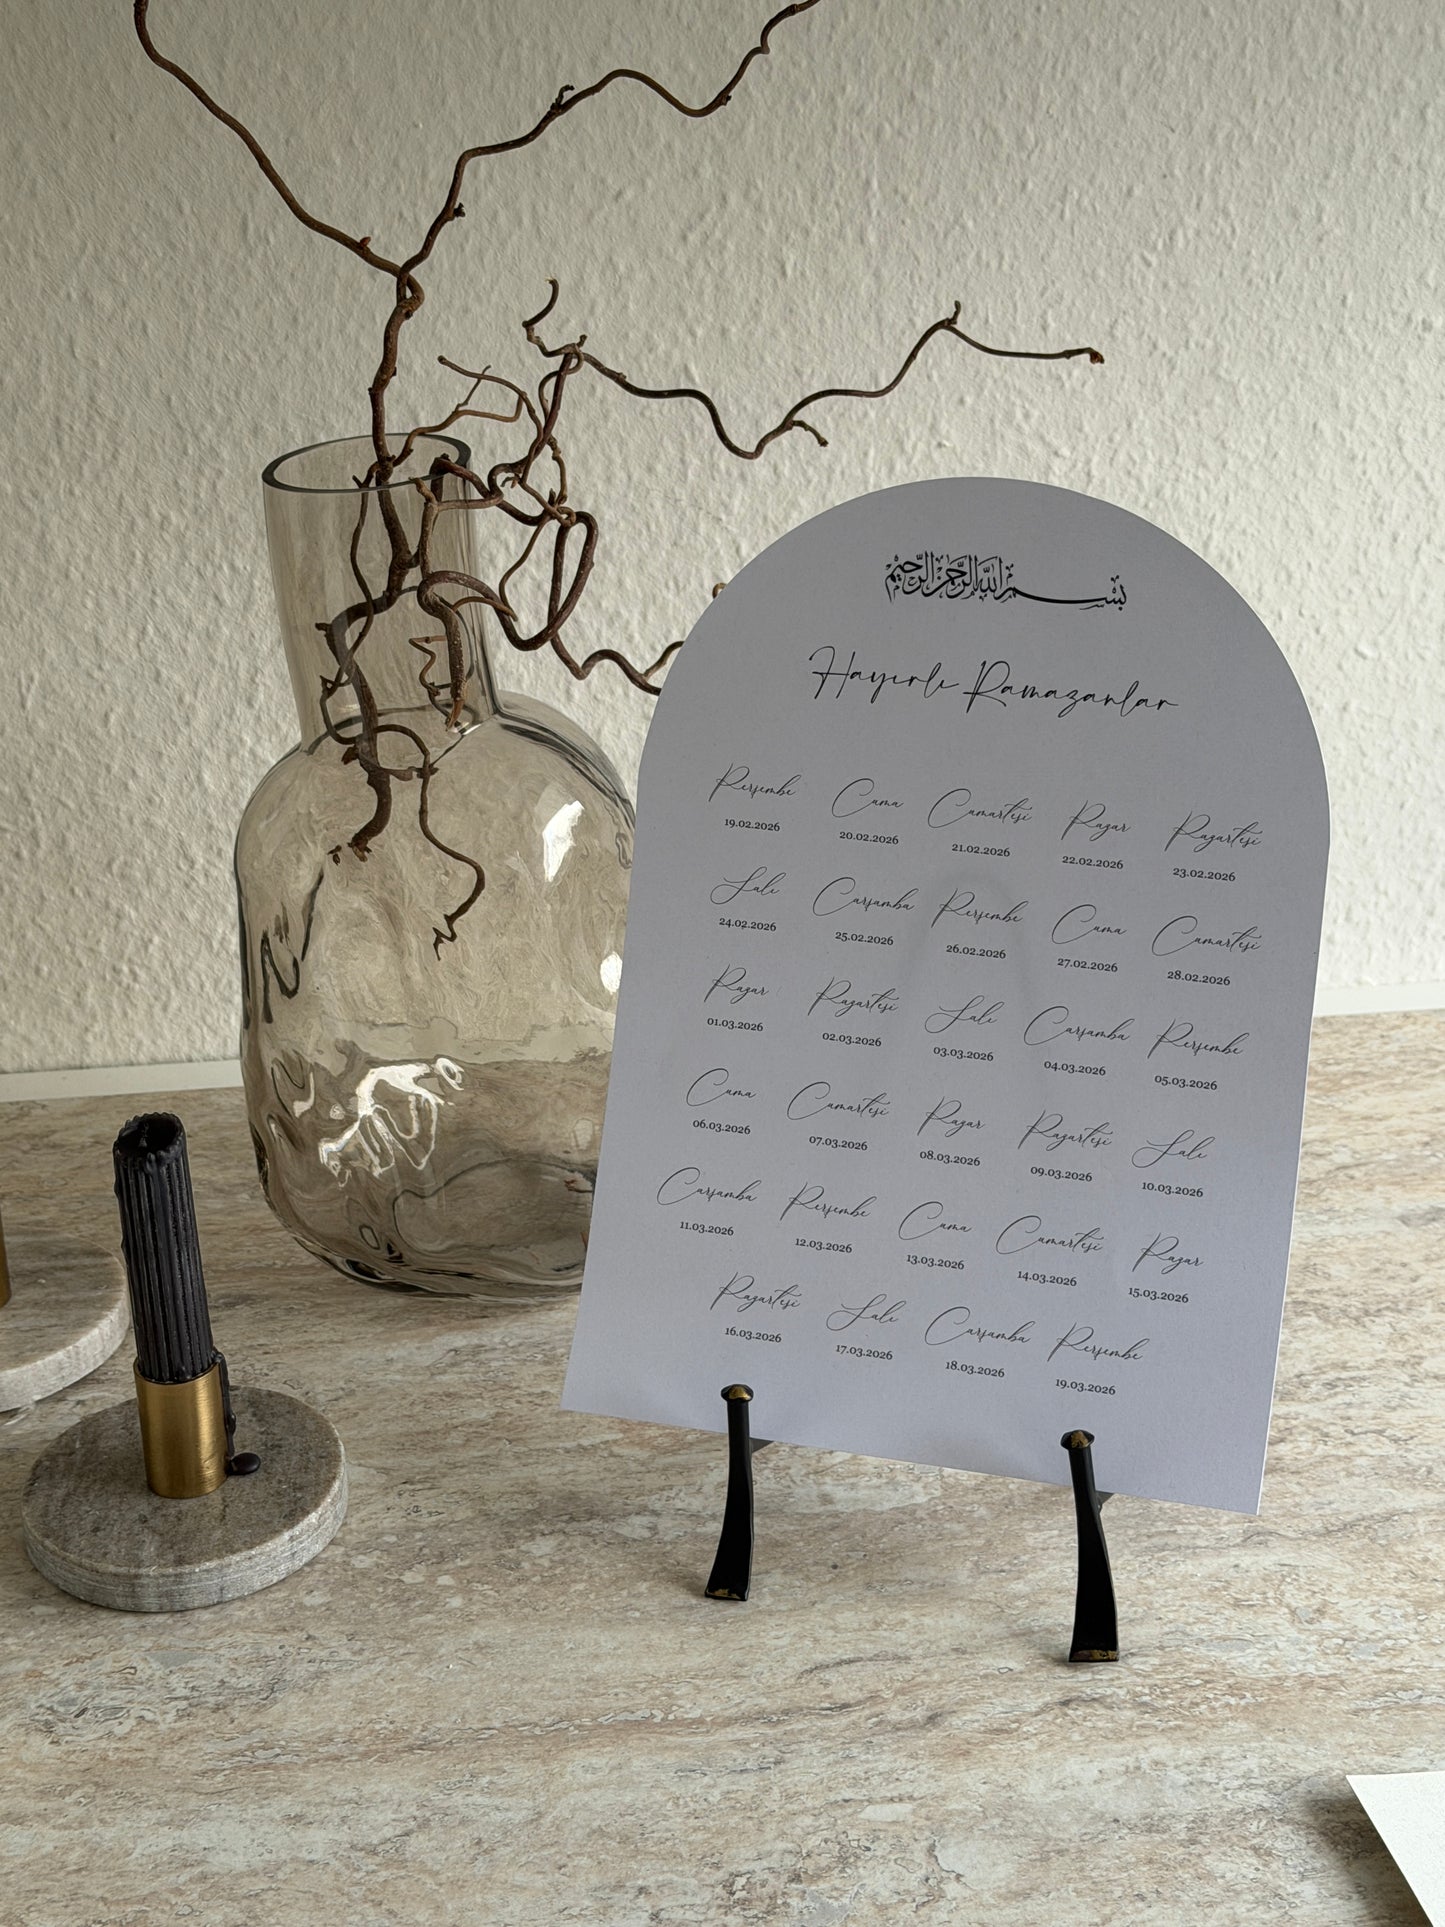 بسم الله الرحمن الرحيم
Hayırlı Ramazanlar
Perşembe Cuma Cumartesi Pazar Pazartesi
19.02.2026 20.02.2026 21.02.2026 22.02.2026 23.02.2026
Salı Çarşamba Perşembe Cuma Cumartesi
24.02.2026 25.02.2026 26.02.2026 27.02.2026 28.02.2026
Pazar Pazartesi Salı Çarşamba Perşembe
01.03.2026 02.03.2026 03.03.2026 04.03.2026 05.03.2026
Cuma Cumartesi Pazar Pazartesi Salı
06.03.2026 07.03.2026 08.03.2026 09.03.2026 10.03.2026
Çarşamba Perşembe Cuma Cumartesi Pazar
11.03.2026 12.03.2026 13.03.2026 14.03.2026 15.03.2026
Pazartesi Salı Çarşamba Perşembe
16.03.2026 17.03.2026 18.03.2026 19.03.2026